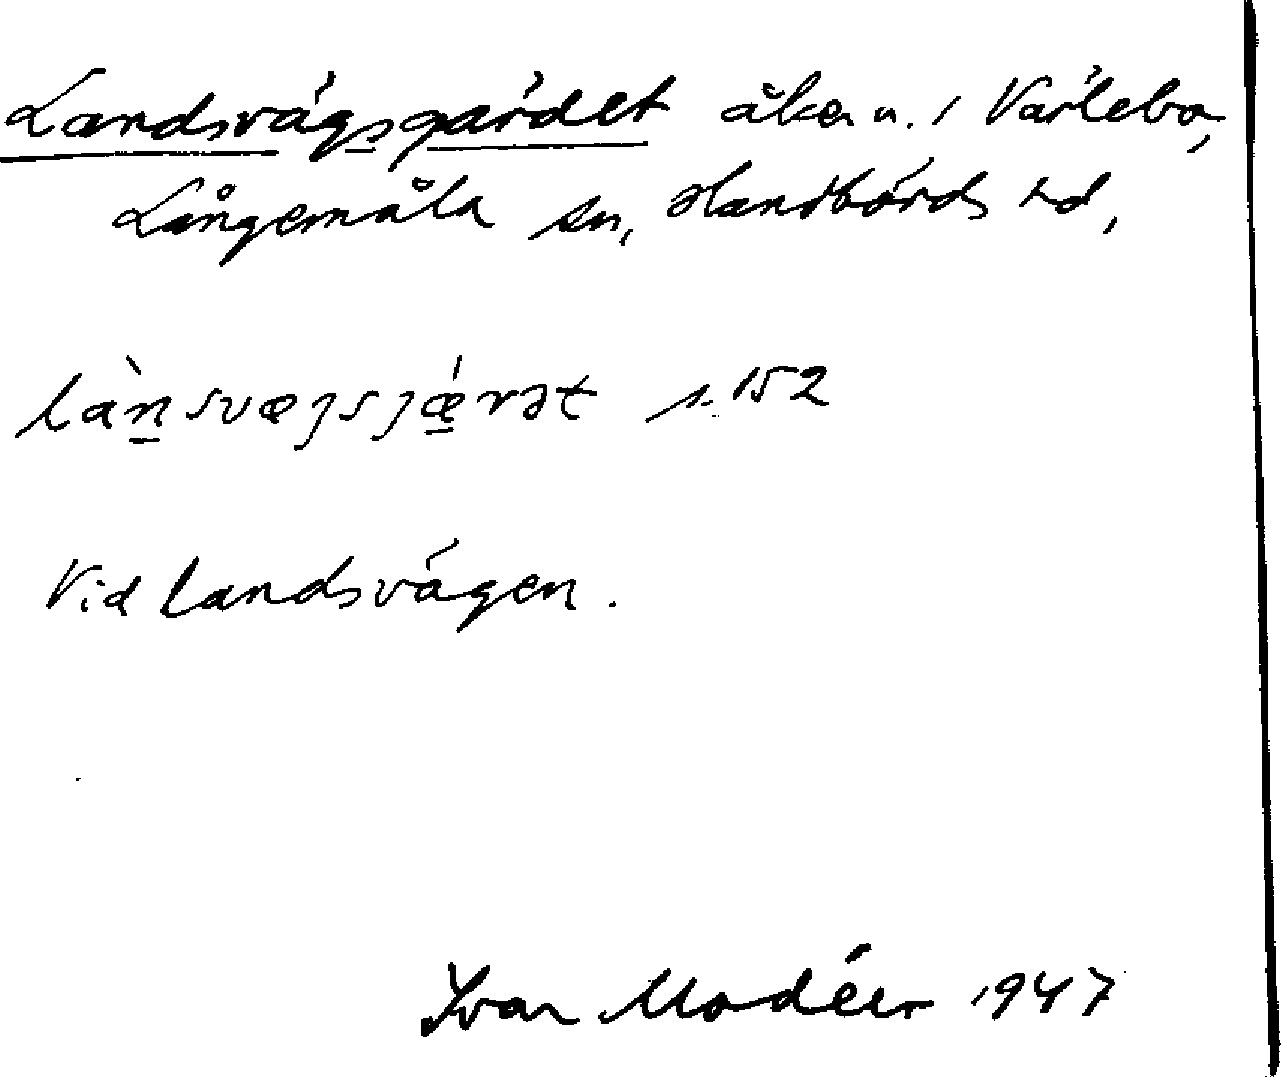 Landsvägsgärdet åker n. i Värlebo,
Långemåla sn, Handbörds hd,
làn̲svæɟsɟǽ̲rət s. 152
Vid landsvägen.
Ivar Modéer 1947